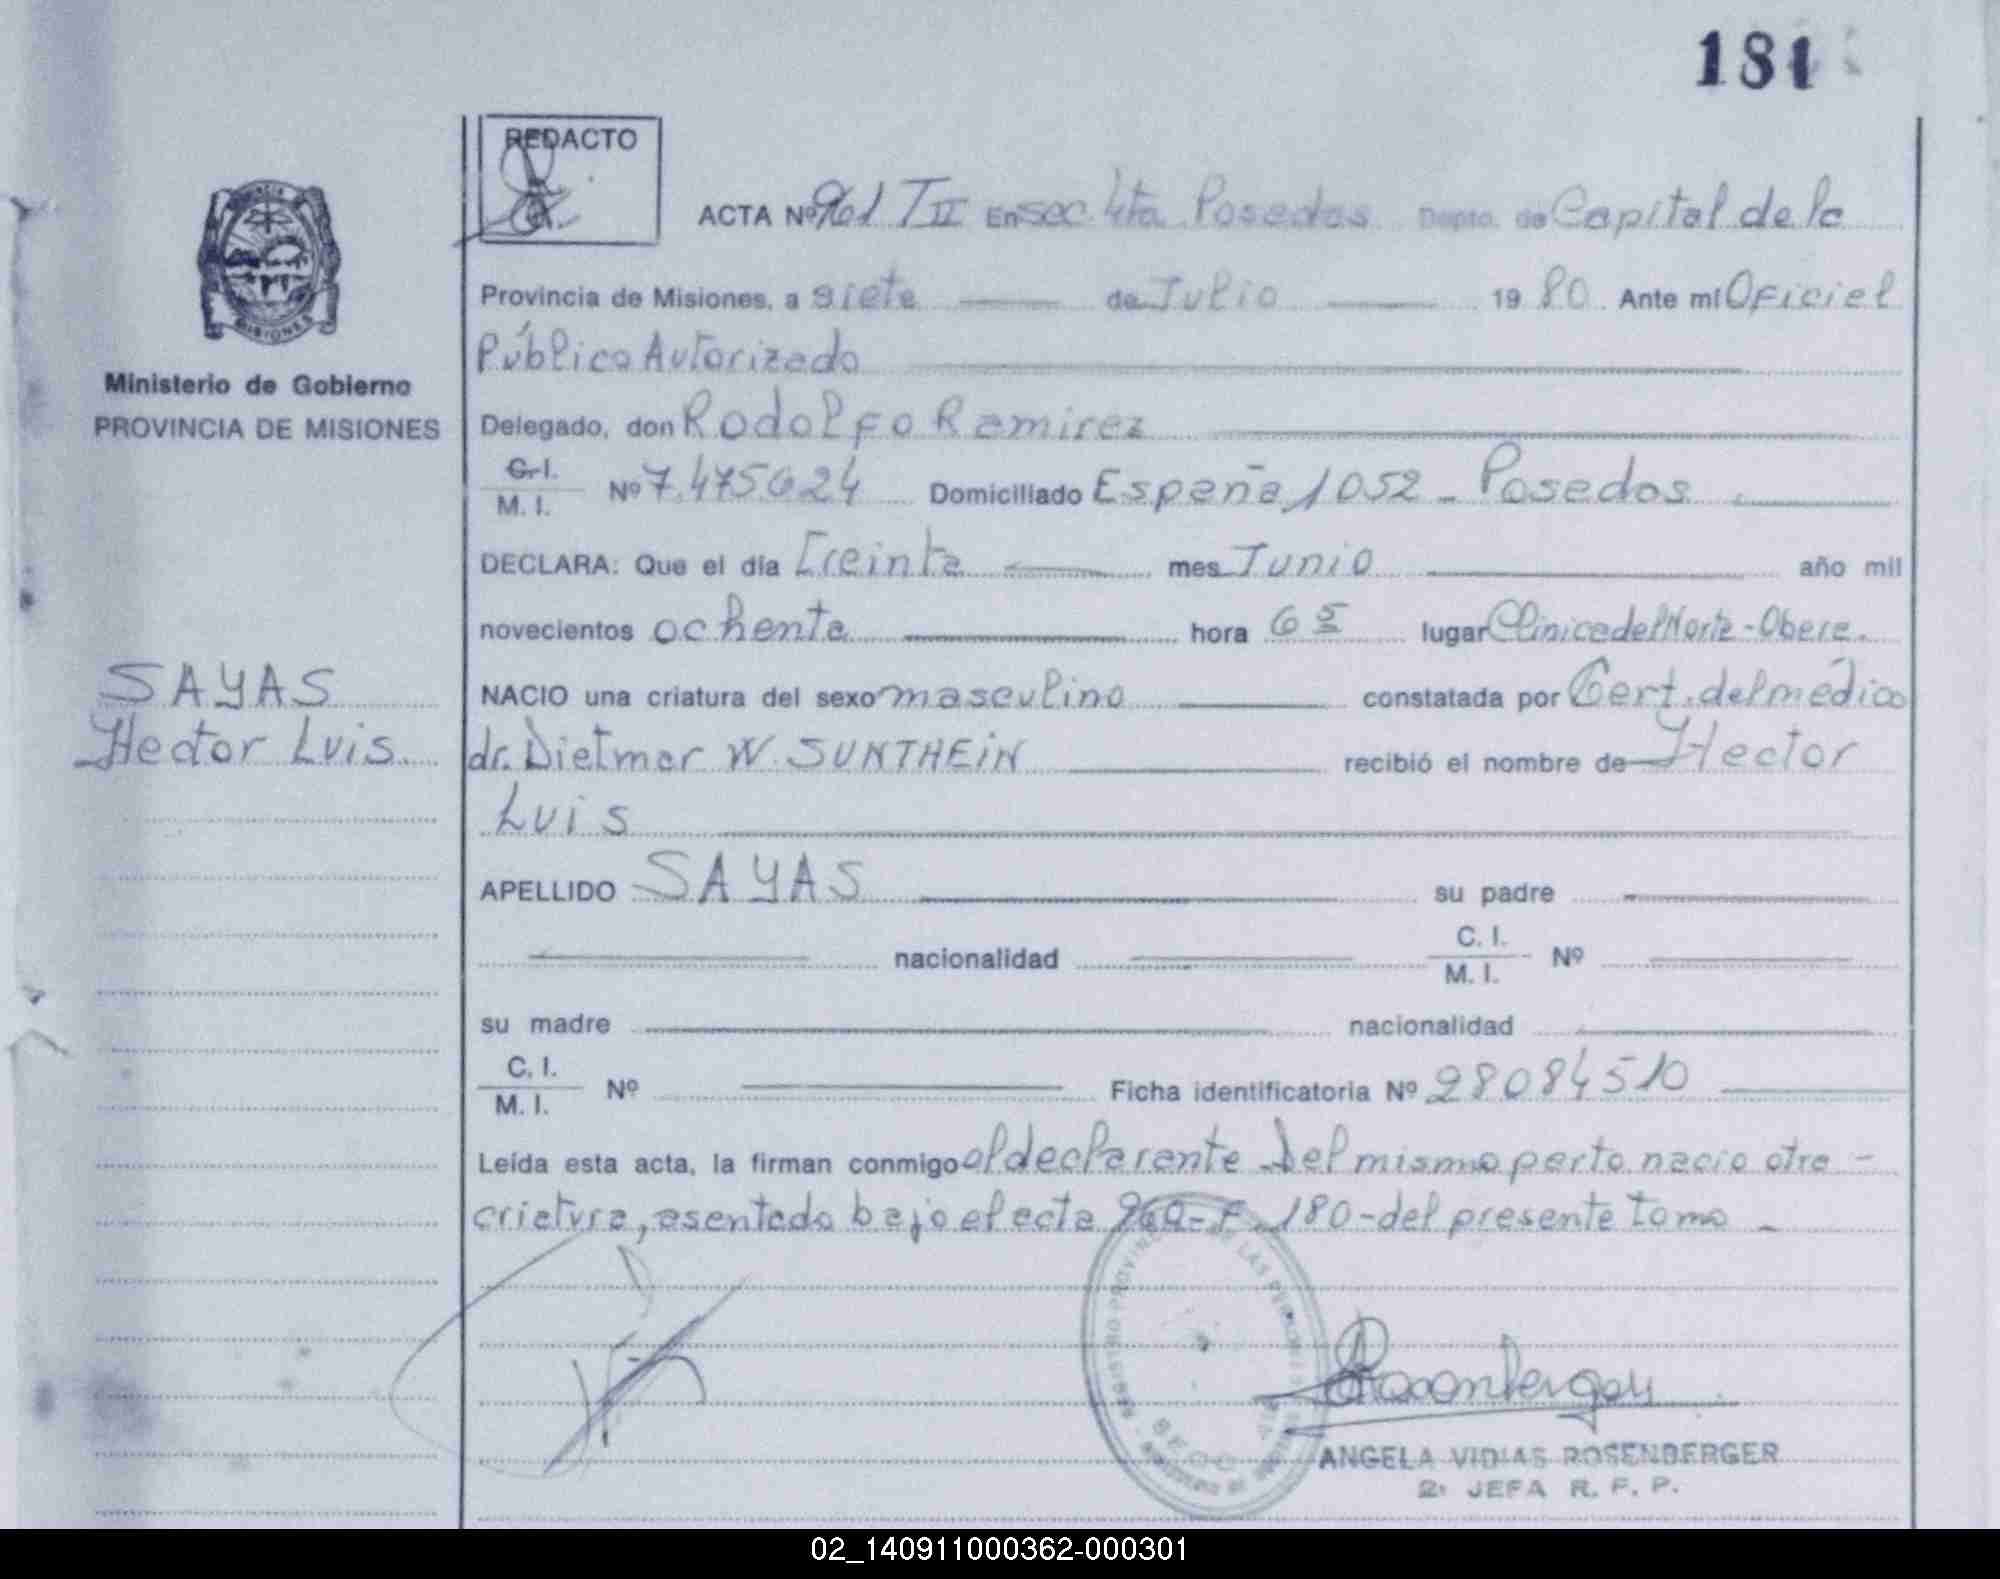 181
REDACTO
ACTA Nº 961 T II En sec. 4ta. Posadas Depto. de Capital de la
Provincia de Misiones, a siete de Julio 19 80. Ante mí Oficial
Público Autorizado
Delegado, don Rodolfo Ramirez
C.I.
M. I. Nº 7.475624 Domiciliado España 1052 - Posadas
DECLARA: Que el día treinta mes Junio año mil
novecientos ochenta hora 6 5 lugar Clinica del Norte - Obera.
NACIO una criatura del sexo masculino constatada por Cert. del médico
dr. Dietmar W. SUNTHEIN recibió el nombre de Hector
Luis
APELLIDO SAYAS su padre
nacionalidad C. I.
M. I. Nº
su madre nacionalidad
C. I.
M. I. Nº Ficha identificatoria Nº 28084510
Leída esta acta, la firman conmigo el declarante Del mismo parto nacio otra -
criatura, asentado bajo el acta 960 - F. 180 - del presente tomo -
MISIONES
Ministerio de Gobierno
PROVINCIA DE MISIONES
SAYAS
Hector Luis.
REGISTRO PROVINCIAL DE LAS PERSONAS
ANGELA VIDIAS ROSENBERGER
2ª JEFA R. F. P.
02_140911000362-000301